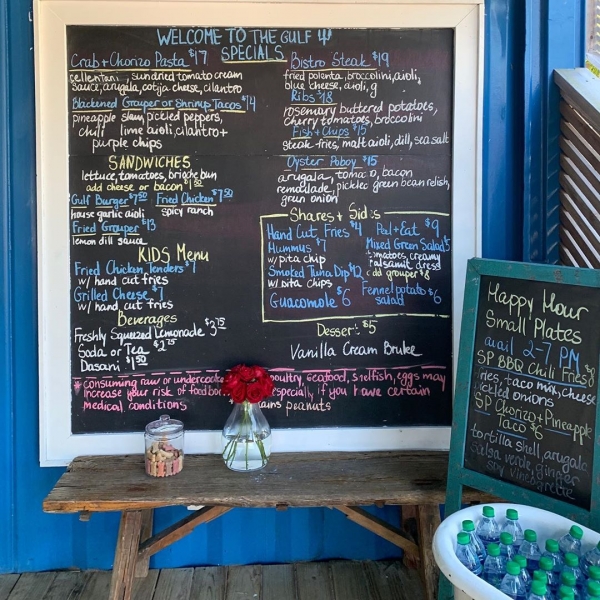 WELCOME TO THE GULF
SPECIALS
Crab + Chorizo Pasta $17
cellentani, sundried tomato cream
sauce, arugula, cotija cheese, cilantro
Blackened Grouper or Shrimp Tacos $14
pineapple slaw, pickled peppers,
chili lime aioli, cilantro +
purple chips
SANDWICHES
lettuce, tomatoes, brioche bun
add cheese or bacon $1.50
Gulf Burger $7.50 Fried Chicken $7.50
house garlic aioli spicy ranch
Fried Grouper $13
lemon dill sauce
KIDS Menu
Fried Chicken Tenders $7
w/ hand cut fries
Grilled Cheese $7
w/ hand cut fries
Beverages
Freshly Squeezed Lemonade $3.75
Soda or Tea $2.75
Dasani $1.50
Bistro Steak $19
fried polenta, broccolini, aioli,
blue cheese, aioli, g
Ribs $18
rosemary buttered potatoes,
cherry tomatoes, broccolini
Fish + Chips $15
steak fries, malt aioli, dill, sea salt
Oyster Poboy $15
arugala, tomato, bacon
remoulade, pickled green bean relish,
green onion
Shares + Sides
Hand Cut Fries $4
Hummus $7
w/ pita chip
Smoked Tuna Dip $12
w/ pita chips
Guacomole $6
Peel + Eat $9
Mixed Green Salad $5
tomatoes, creamy
balsamic dress
add grouper $8
Fennel potato $6
salad
Dessert $5
Vanilla Cream Brulee
* consuming raw or undercooked poultry, seafood, shelfish, eggs may
increase your risk of food bo especially if you have certain
medical conditions ains peanuts
Happy Hour
Small Plates
avail 2-7 PM
SP BBQ Chili Fries
fries, taco mix, cheese
pickled onions
SP Chorizo + Pineapple
Taco $6
tortilla shell, arugala
salsa verde, ginger
soy vinegarette